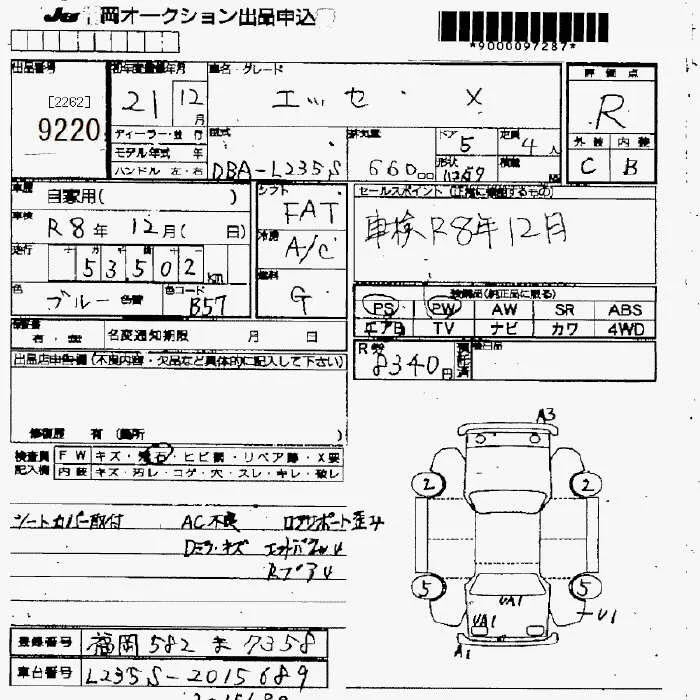 JU 岡オークション出品申込
*9000097287*
出品番号 初年度登録年月 車名・グレード 評価点
[2262] 21年 12月 エッセ・X R
9220
ディーラー・並行 型式 排気量 ドア 5 定員 4人 外装 内装
モデル年式 年
ハンドル 左・右 DBA-L235S 660cc 形状 積載 C B
車歴 自家用( ) シフト FAT セールスポイント
車検 R8年 12月( 日) 冷房 A/C 車検R8年12月
走行 53502 km
燃料 G
色 ブルー 色替 色コード B57
PS PW AW SR ABS
エアB TV ナビ カワ 4WD
有・無 名変通知期限 月 日
R券 8340円 預託済
出品店申告欄(不良内容・欠品など具体的に記入して下さい)
修復歴 有 (箇所 )
検査員 FW キズ・飛石・ヒビ割・リペア跡・X要
記入欄 内装 キズ・汚レ・コゲ・穴・スレ・キレ・破レ
シートカバー取付 AC不良
Dミラーキズ
A3
2 2
5 5
UA1
UA1 U1
A1
登録番号 福岡 582 ま 7358
車台番号 L235S-2015689